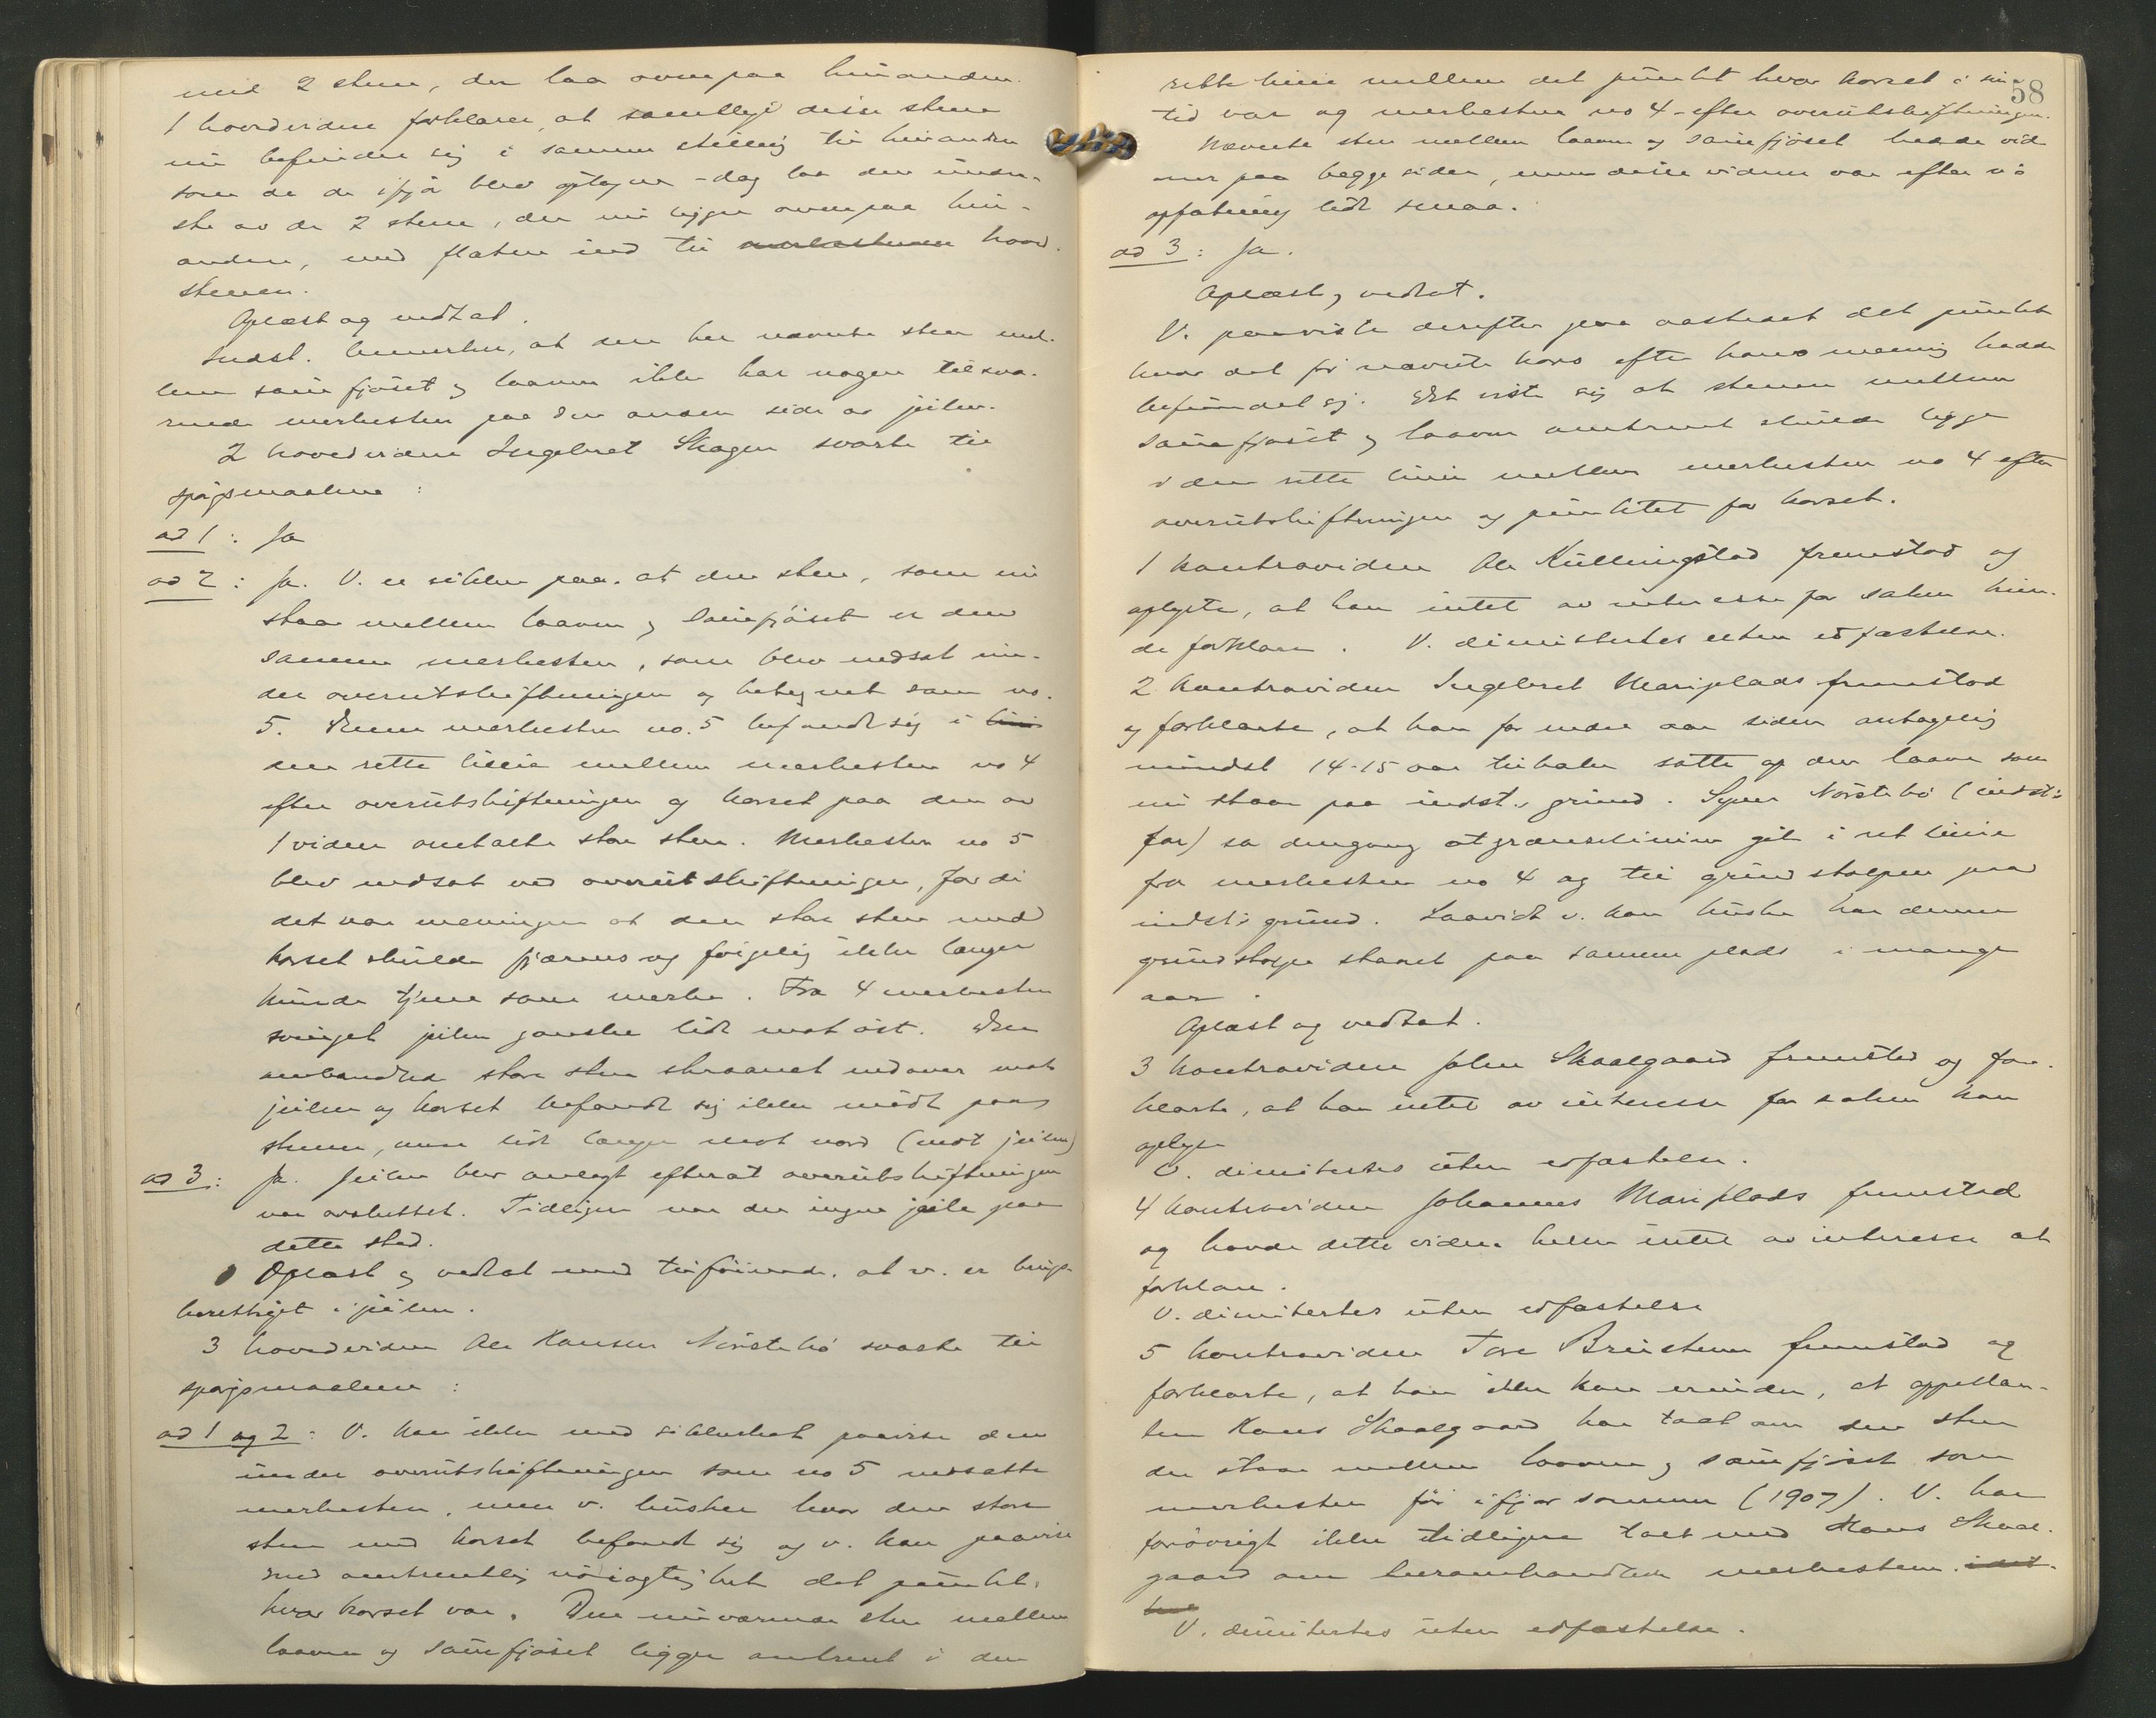 med 2 stene, der laa ovenpaa hinanden.
1 hovedvidne forklarer, at samtlige disse stene
nu befinder sig i samme stilling til hinanden
som da de ifjor blev optagne - dog laa den neder-
ste av de 2 stene, der nu ligger ovenpaa hin-
anden, med flaten ind til merkestenen hoved-
stenen.
Oplæst og vedtat.
Indst. bemerker, at den her nævnte sten mel-
lem sauefjøset og laaven ikke har nogen tilsva-
rende merkesten paa den anden side av jeilen.
2 hovedvidne Ingebret Skagen svarte til
spørgsmaalene:
ad 1: Ja
ad 2: Ja. V. er sikker paa at den sten, som nu
staar mellem laaven og sauefjøset er den
samme merkesten, som blev nedsat un-
der overutskiftningen og betegnet som no.
5. Denne merkesten no. 5 befandt sig i linie
den rette linie mellem merkesten no 4
efter overutskiftningen og korset paa den av
1 vidne omtalte store sten. Merkesten no 5
blev nedsat ved overutskiftningen, fordi
det var meningen at den store sten med
korset skulde fjernes og følgelig ikke længer
kunde tjene som merke. Fra 4 merkesten
svinget jeilen ganske lidt mot øst. Den
omhandlede store sten skraanet nedover mot
jeilen og korset befandt sig ikke midt paa
stenen, men lidt længer mot nord (mot jeilen)
ad 3: Ja. Jeilen blev anlagt efterat overutskiftningen
var avsluttet. Tidligere var der ingen jeile paa
dette sted.
Oplæst og vedtat med tilføiende, at v. er bruks-
berettiget i jeilen.
3 hovedvidne Ole Hansen Nørstebø svarte til
spørgsmaalene:
ad 1 og 2: V. kan ikke med sikkerhet paavise den
under overutskiftningen som no 5 nedsatte
merkesten, men v. husker hvor den store
sten med korset befandt sig og v. kan paavise
med omtrentlig nøiagtighet det punkt,
hvor korset var. Den nuværende sten mellem
laaven og sauefjøset ligger omtrent i den
58
rette linie mellem det punkt hvor korset i sin
tid var og merkesten no 4 - efter overutskiftningen.
Nævnte sten mellem laaven og sauefjøset hadde vid-
ner paa begge sider, men disse vidner var efter v's
opfatning lidt smaa.
ad 3: Ja.
Oplæst og vedtat.
V. paaviste derefter paa aastedet det punkt
hvor det før nævnte kors efter hans mening hadde
befundet sig. Det viste sig at stenen mellem
sauefjøset og laaven omtrent skulde ligge
i den rette linie mellem merkesten no 4 efter
overutskiftningen og punktet for korset.
1 kontravidne Ole Kullingstad fremstod og
oplyste, at han intet av interesse for saken kun-
de forklare. V. dimittertes uten edfæstelse.
2 kontravidne Ingebret Mariplads fremstod
og forklarte, at han for endel aar siden antagelig
mindst 14-15 aar tilbake satte op den laave som
nu staar paa indst.s grund. Syver Nörstebö (indst:s
far) sa dengang at grænselinien gik i ret linie
fra merkesten no 4 og til grindstolpen paa
indst:s grund. Saavidt v. kan huske har denne
grindstolpe staaet paa samme plads i mange
aar.
Oplæst og vedtat.
3 kontravidne John Skaalgaard fremstod og for-
klarte, at han intet av interesse for saken kan
oplyse.
V. dimittertes uten edfæstelse.
4 kontravidne Johannes Mariplads fremstod
og havde dette vidne heller intet av interesse at
forklare.
V. dimittertes uten edfæstelse
5 kontravidne Tore Breisteen fremstod og
forklarte, at han ikke kan erindre, at appellan-
ten Hans Skaalgaard har talt om den sten
der staar mellem laaven og sauefjøset som
merkesten før ifjor sommer (1907). V. har
forøvrigt ikke tidligere talt med Hans Skaal-
gaard om heromhandlede merkesten.
V. dimittertes uten edfæstelse.